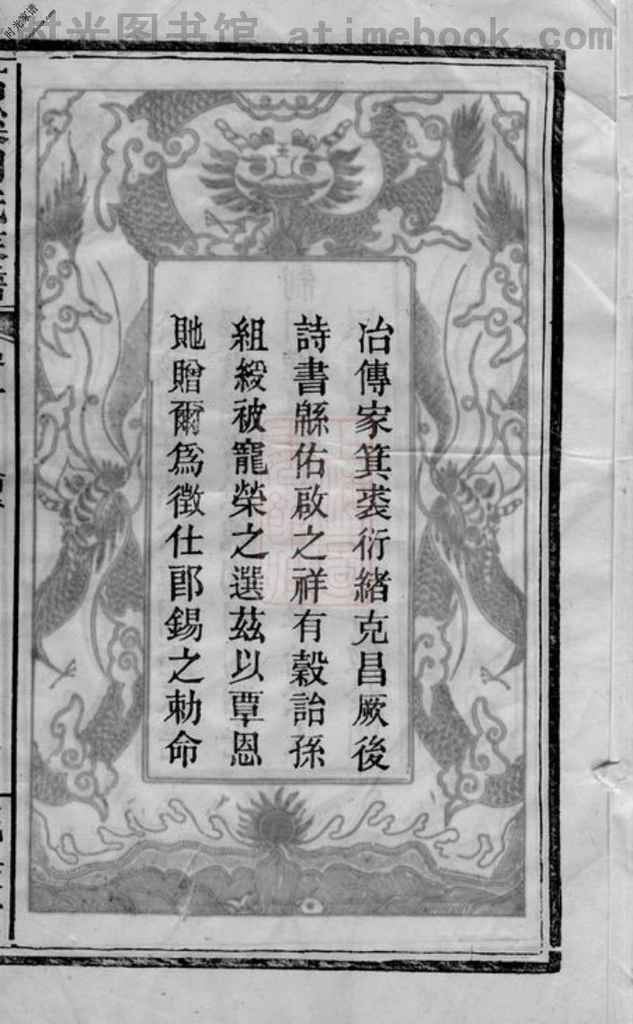 时光图书馆 atimebook.com
时光家谱
冶傳家箕裘衍緒克昌厥後
詩書緜佑啟之祥有穀詒孫
組緞被寵榮之選茲以覃恩
貤贈爾爲徵仕郎錫之勅命